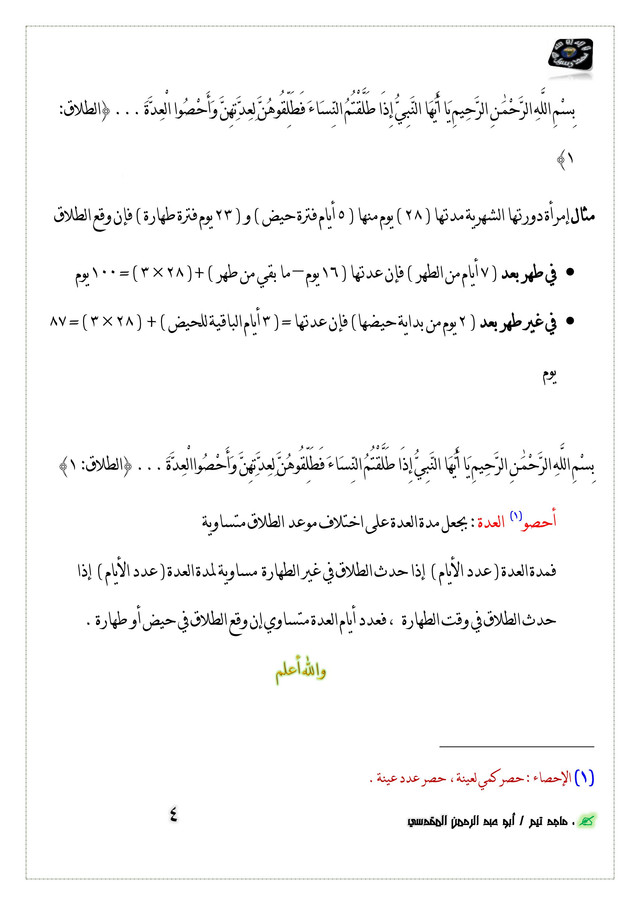 بِسْمِ اللَّهِ الرَّحْمَٰنِ الرَّحِيمِ يَا أَيُّهَا النَّبِيُّ إِذَا طَلَّقْتُمُ النِّسَاءَ فَطَلِّقُوهُنَّ لِعِدَّتِهِنَّ وَأَحْصُوا الْعِدَّةَ . . . ﴿الطلاق:
١﴾
مثال إمرأة دورتها الشهرية مدتها ( ٢٨ ) يوم منها ( ٥ أيام فترة حيض ) و ( ٢٣ يوم فترة طهارة ) فإن وقع الطلاق
• في طهر بعد ( ٧ أيام من الطهر ) فإن عدتها ( ١٦ يوم – ما بقي من طهر ) + ( ٢٨ × ٣ ) = ١٠٠ يوم
• في غير طهر بعد ( ٢ يوم من بداية حيضها ) فإن عدتها = ( ٣ أيام الباقية للحيض ) + ( ٢٨ × ٣ ) = ٨٧
يوم
بِسْمِ اللَّهِ الرَّحْمَٰنِ الرَّحِيمِ يَا أَيُّهَا النَّبِيُّ إِذَا طَلَّقْتُمُ النِّسَاءَ فَطَلِّقُوهُنَّ لِعِدَّتِهِنَّ وَأَحْصُوا الْعِدَّةَ . . . ﴿الطلاق: ١﴾
أحصو(١) العدة : بجعل مدة العدة على اختلاف موعد الطلاق متساوية
فمدة العدة ( عدد الأيام ) إذا حدث الطلاق في غير الطهارة مساوية لمدة العدة ( عدد الأيام ) إذا
حدث الطلاق في وقت الطهارة ، فعدد أيام العدة متساوي إن وقع الطلاق في حيض أو طهارة .
والله أعلم
(١) الإحصاء : حصر كمي لعينة ، حصر عدد عينة .
، ماجد تيم / أبو عبد الرحمن المقدسي
٤